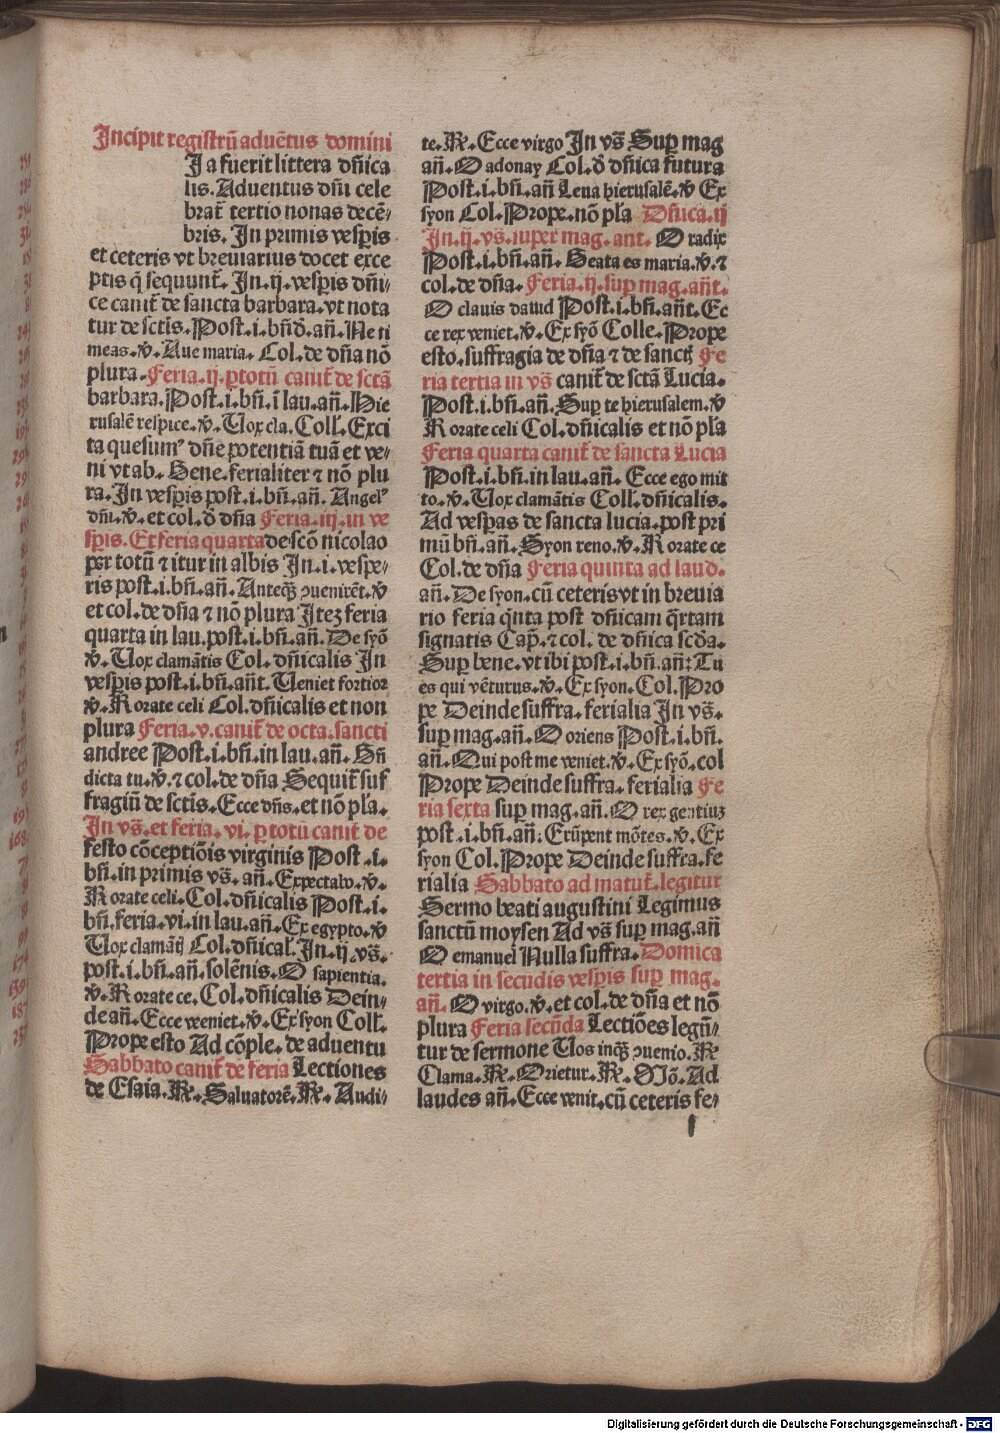 Incipit registrū aduētus domini
I a fuerit littera dn̄ica
lis. Aduentus dn̄i cele
brat̄ tertio nonas decē-
bris. In primis vesp̄is
et ceteris vt breuiarius docet exce
ptis q̄ sequunt̄. In .ij. vesp̄is dn̄i-
ce canit̄ de sancta barbara. vt nota
tur de sctīs. Post .i. bn̄d. an̄. Ne ti
meas. v̄. Aue maria. Col. de dn̄a nō
plura. Feria .ij. p totū canit̄ de sctā
barbara. Post .i. bn̄. ī lau. an̄. Hie
rusalē respice. v̄. Vox cla. Coll̄. Exci
ta quesum⁹ dn̄e potentiā tuā et ve-
ni vt ab. Bene. ferialiter ⁊ nō plu
ra. In vesp̄is post .i. bn̄. an̄. Angel⁹
dn̄i. v̄. et col. d̄ dn̄a Feria .iij. in ve
sp̄is. Et feria quarta de scō nicolao
per totū ⁊ itur in albis In .i. vespe-
ris post .i. bn̄. an̄. Anteq̄ꝫ ꝯuenirēt. v̄
et col. de dn̄a ⁊ nō plura Itez feria
quarta in lau. post .i. bn̄. an̄. De syō
v̄. Vox clamātis Col. dn̄icalis In
vesp̄is post .i. bn̄. an̄t. Veniet fortior
v̄. Rorate celi Col. dn̄icalis et non
plura Feria .v. canit̄ de octa. sancti
andree Post .i. bn̄. in lau. an̄. Bn̄
dicta tu. v̄. ⁊ col. de dn̄a Sequit̄ suf
fragiū de sctīs. Ecce dn̄s. et nō pla.
In vs̄. et feria .vi. p totū canit̄ de
festo cōceptiōis virginis Post .i.
bn̄. in primis vs̄. an̄. Expectabo. v̄.
Rorate celi. Col. dn̄icalis Post .i.
bn̄. feria .vi. in lau. an̄. Ex egypto. v̄
Vox clamātꝭ Col. dn̄ical̄. In .ij. vs̄.
post .i. bn̄. an̄. solēnis. O sapientia.
v̄. Rorate ce. Col. dn̄icalis Dein-
de an̄. Ecce veeniet. v̄. Ex syon Coll̄.
Prope esto Ad cōple. de aduentu
Sabbato canit̄ de feria Lectiones
de Esaia. R̄. Saluatorē. R̄. Audi-
te. R̄. Ecce virgo In vs̄ Sup mag
an̄. O adonay Col. d̄ dn̄ica futura
Post .i. bn̄. an̄ Leua hierusalē. v̄ Ex
syon Col. Prope. nō pl̄a Dn̄ica .ij
In .ij. vs̄. super mag. ant. O radix
Post .i. bn̄. an̄. Beata es maria. v̄. ⁊
col. de dn̄a. Feria .ij. sup mag. an̄t.
O clauis dauid Post .i. bn̄. an̄t. Ec
ce rex veniet. v̄. Ex syō Colle. Prope
esto. suffragia de dn̄a ⁊ de sanctꝭ Fe
ria tertia in vs̄ canit̄ de sctā Lucia.
Post .i. bn̄. an̄. Sup te hierusalem. v̄
Rorate celi Col. dn̄icalis et nō pl̄a
Feria quarta canit̄ de sancta Lucia
Post .i. bn̄. in lau. an̄. Ecce ego mit
to. v̄. Vox clamātis Coll̄. dn̄icalis.
Ad vesp̄as de sancta lucia. post pri
mū bn̄. an̄. Syon reno. v̄. Rorate ce
Col. de dn̄a Feria quinta ad laud.
an̄. De syon. cū ceteris vt in breuia
rio feria q̄nta post dn̄icam q̄rtam
signatis Cap̄. ⁊ col. de dn̄ica scd̄a.
Sup bene. vt ibi post .i. bn̄. an̄: Tu
es qui vēturus. v̄. Ex syon. Col. Pro
pe Deinde suffra. ferialia In vs̄.
sup mag. an̄. O oriens Post .i. bn̄.
an̄. Qui post me veniet. v̄. Ex syō. col
Prope Deinde suffra. ferialia Fe
ria sexta sup mag. an̄. O rex gentiuz
post .i. bn̄. an̄: Erūpent mōtes. v̄. Ex
syon Col. Prope Deinde suffra. fe
rialia Sabbato ad matut̄. legitur
Sermo beati augustini Legimus
sanctū moysen Ad vs̄ sup mag. an̄
O emanuel Nulla suffra. Domica
tertia in secūdis vesp̄is sup mag.
an̄. O virgo. v̄. et col. de dn̄a et nō
plura Feria secūda Lectiōes legn̄-
tur de sermone Vos inq̄ꝫ ꝯuenio. R̄
Clama. R̄. Orietur. R̄. Nō. Ad
laudes an̄. Ecce venit. cū ceteris fe-
I
Digitalisierung gefördert durch die Deutsche Forschungsgemeinschaft - DFG